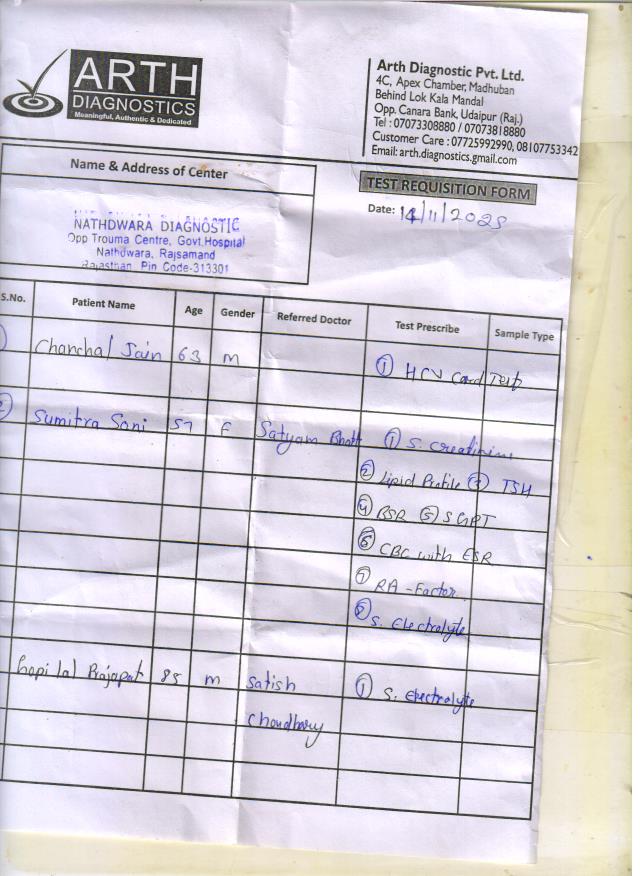 ARTH
DIAGNOSTICS
Meaningful, Authentic & Dedicated
Arth Diagnostic Pvt. Ltd.
4C, Apex Chamber, Madhuban
Behind Lok Kala Mandal
Opp. Canara Bank, Udaipur (Raj.)
Tel : 07073308880 / 07073818880
Customer Care : 07725992990, 08107753342
Email: arth.diagnostics.gmail.com
Name & Address of Center
TEST REQUISITION FORM
Date: 14/11/2025
NATHDWARA DIAGNOSTIC
Opp Trouma Centre, Govt.Hospital
Nathdwara, Rajsamand
Rajasthan Pin Code-313301
S.No. Patient Name Age Gender Referred Doctor Test Prescribe Sample Type
Chanchal Jain 63 M ① HCV Card Test
② Sumitra Soni 57 F Satyam Bhatt ① S. Creatinine
② Lipid Profile ③ TSH
④ BSR ⑤ SGPT
⑥ CBC with ESR
⑦ RA-Factor
⑧ S. Electrolyte
Gopi lal Prajapat 85 M Satish ① S. Electrolyte
Choudhary